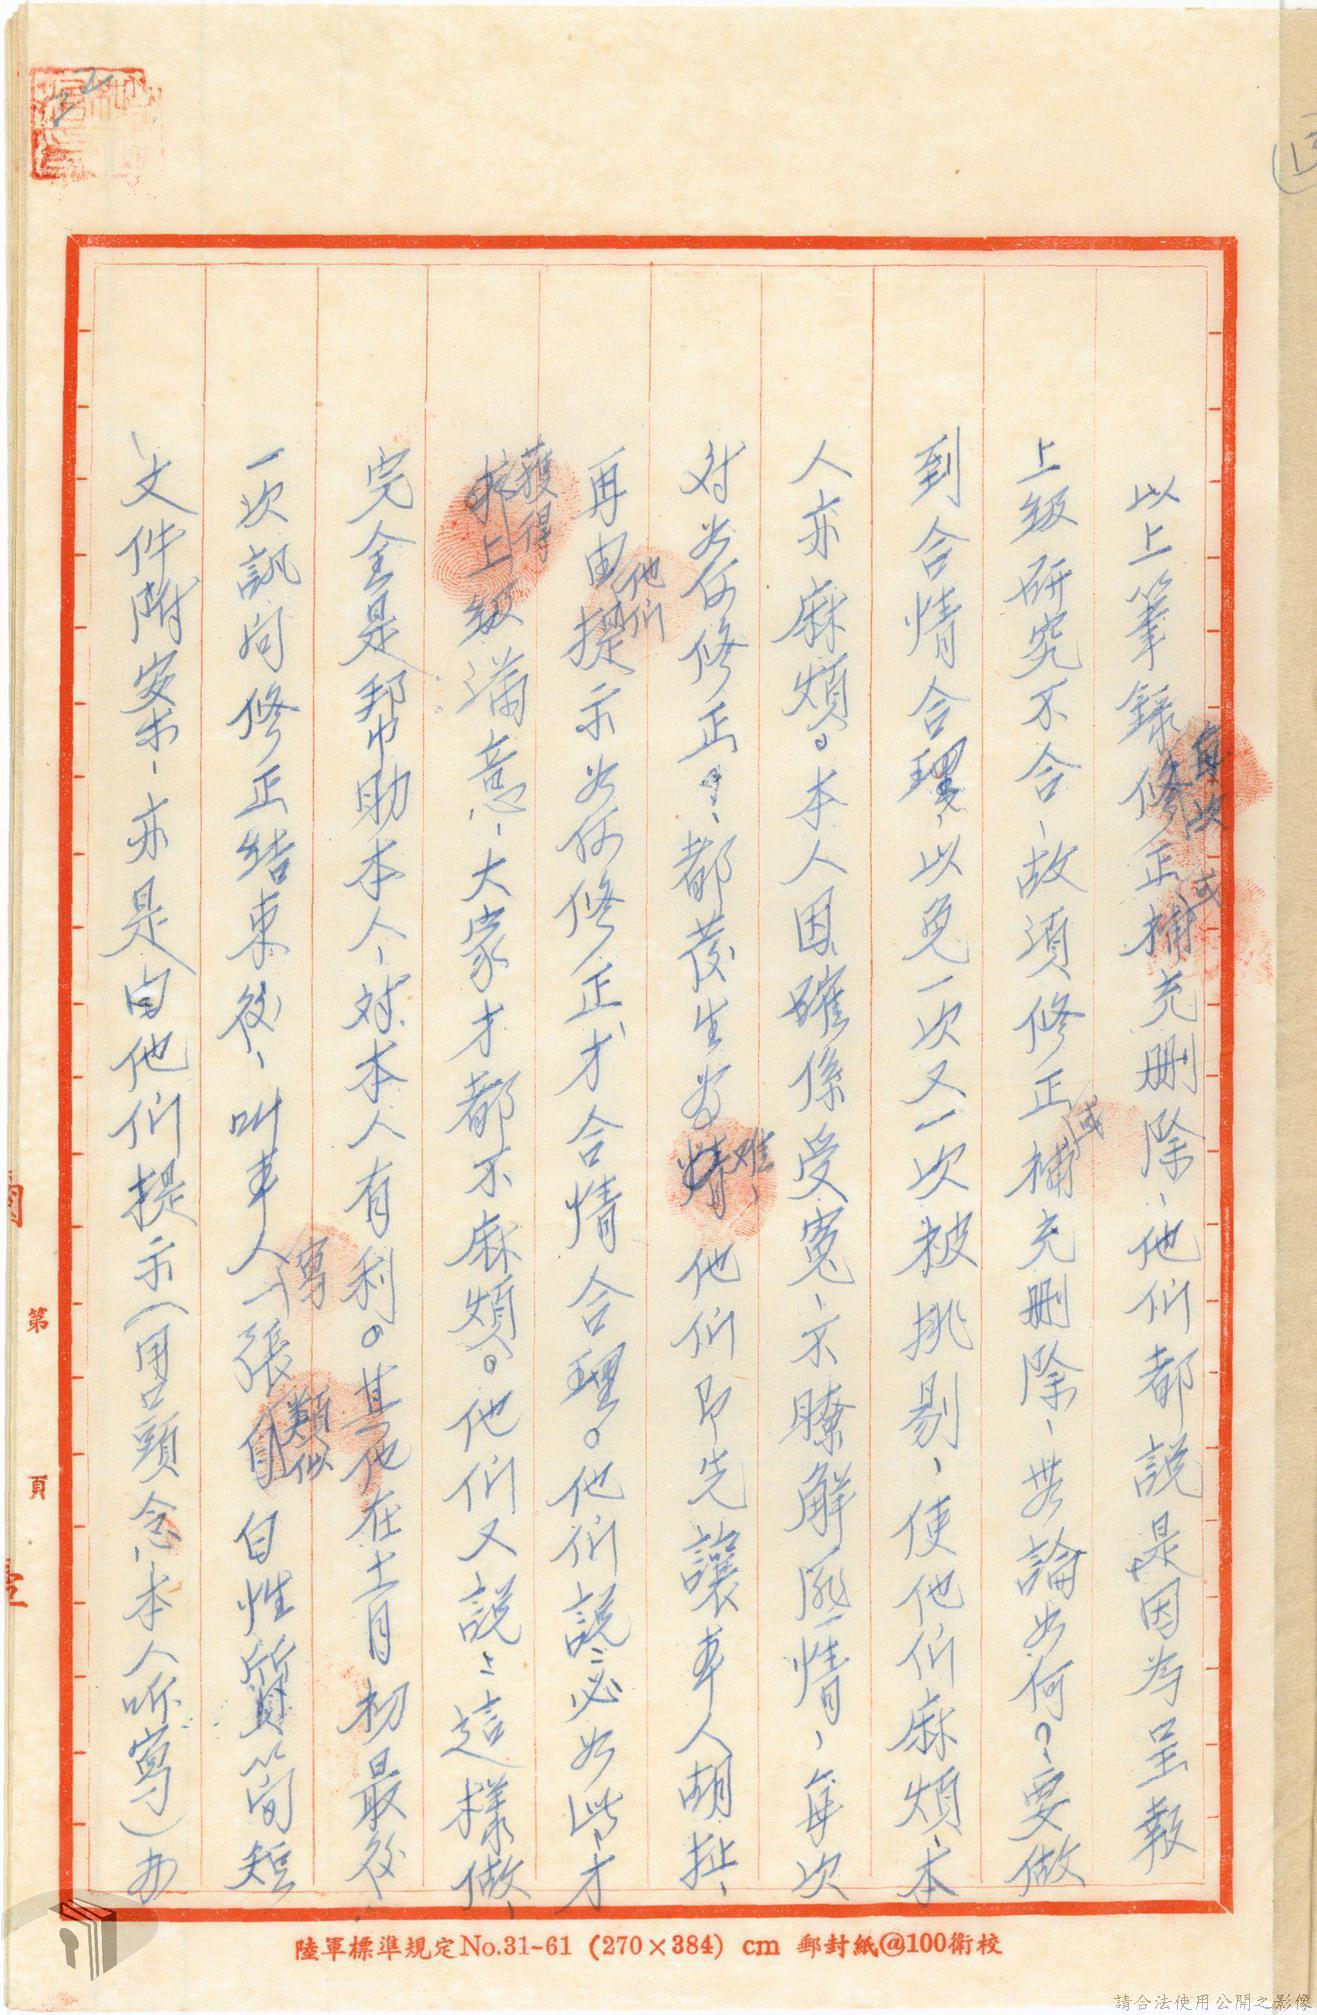 以上筆錄每次修正或補充刪除、他们都説是因为呈報
上級研究不合、故須修正或補充刪除、無論如何?要做
到合情合理、以免一次又一次被挑剔、使他们麻煩、本
人亦麻煩。本人因確係受冤、不瞭解匪情、每次
对如何修正?、都發生為難、他们即先讓本人胡扯、
再由他们提示如何修正才合情合理。他们説:必如此、才
獲得上級滿意、大家才都不麻煩。他们又説:這樣做、
完全是幫助本人、对本人有利。其他在十一月初最後
一次訊问修正結束後、叫本人寫一張類似自白性質簡短
文件附案、亦是由他们提示(用口頭念、本人听寫)办
陸軍標準規定No.31-61 (270×384) cm 郵封紙@100衛校
第 頁
請合法使用公開之影像